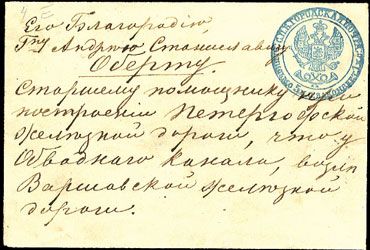 Его Благородію,
Гну Андрею Станиславичу
Оберту.
Старшему помощнику при
построеніи Петергофской
желѣзной дороги, что у
Обводнаго канала, возлѣ
Варшавской желѣзной
дороги.